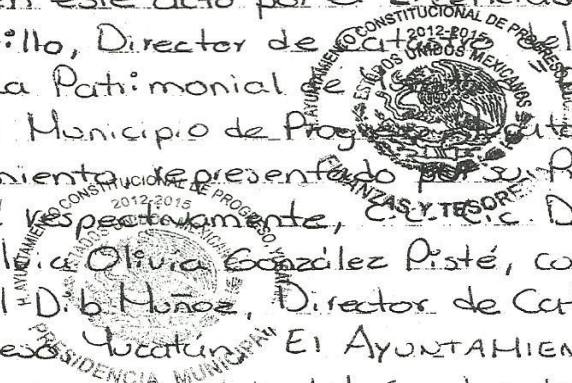 en este acto por el Licenciado
illo, Director de Catastro del
la Patrimonial de
l Municipio de Progreso Yucatán
miento representado por su P
l respectivamente, C.C. Lic. D
licia Olivia González Pisté, co
l Dib Muñoz, Director de Cat
eso Yucatán El AYUNTAMIEN
H. AYUNTAMIENTO CONSTITUCIONAL DE PROGRESO
2012-2015
ESTADOS UNIDOS MEXICANOS
FINANZAS Y TESORE
H. AYUNTAMIENTO CONSTITUCIONAL DE PROGRESO, YUCATAN
2012-2015
ESTADOS UNIDOS MEXICANOS
PRESIDENCIA MUNICIPAL